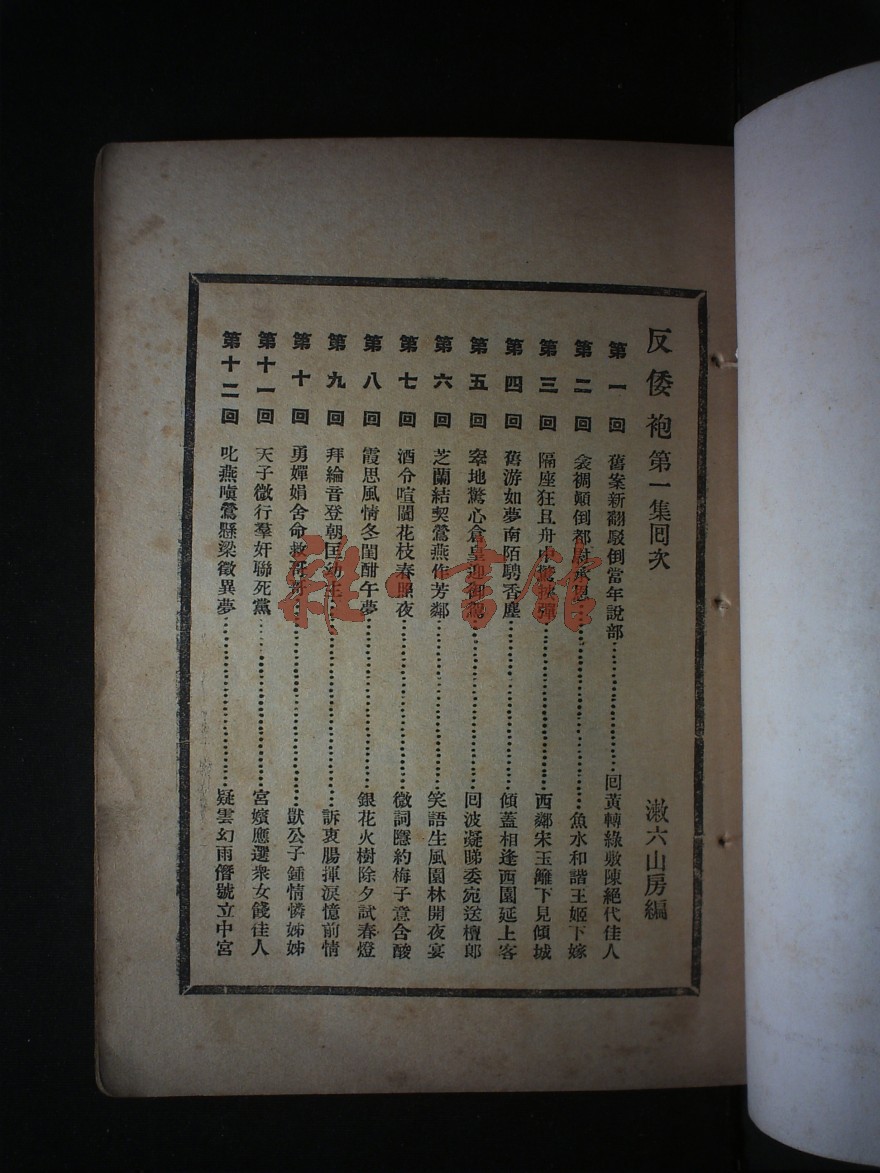 反倭袍第一集回次 漱六山房編
第一回 舊案新翻駁倒當年說部 回黃轉綠敷陳絕代佳人
第二回 衾裯顚倒都尉承恩 魚水和諧王姬下嫁
第三回 隔座狂且舟中驚挾彈 西鄰宋玉籬下見傾城
第四回 舊游如夢南陌騁香塵 傾蓋相逢西園延上客
第五回 地驚心倉皇迎御 回波凝睇委宛送檀郞
第六回 芝蘭結契鶯燕作芳鄰 笑語生風園林開夜宴
第七回 酒令喧闐花枝春照夜 微詞隱約梅子意含酸
第八回 霞思風情冬閨酣午夢 銀花火樹除夕試春燈
第九回 拜綸音登朝匡幼 訴衷腸揮淚憶前情
第十回 勇嬋娟舍命救哥哥 獃公子鍾情憐姊姊
第十一回 天子微行羣奸聯死黨 宮嬪應選衆女餞佳人
第十二回 叱燕嗔鶯懸梁徵異夢 疑雲幻雨僭號立中宮
雜·書館